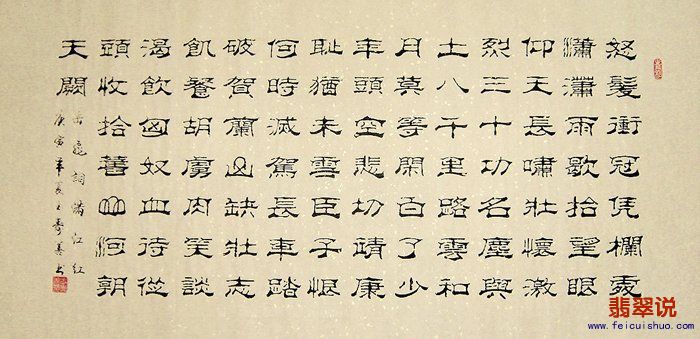 怒髮衝冠凭欄處
瀟瀟雨歇抬望眼
仰天長嘯壯懷激
烈三十功名塵與
土八千里路雲和
月莫等閑白了少
年頭空悲切靖康
恥猶未雪臣子恨
何時滅駕長車踏
破賀蘭山缺壯志
飢餐胡虜肉笑談
渴飲匈奴血待從
頭收拾舊山河朝
天闕
岳飛詞滿江紅
庚寅年夏
翡翠说
www.feicuishuo.com